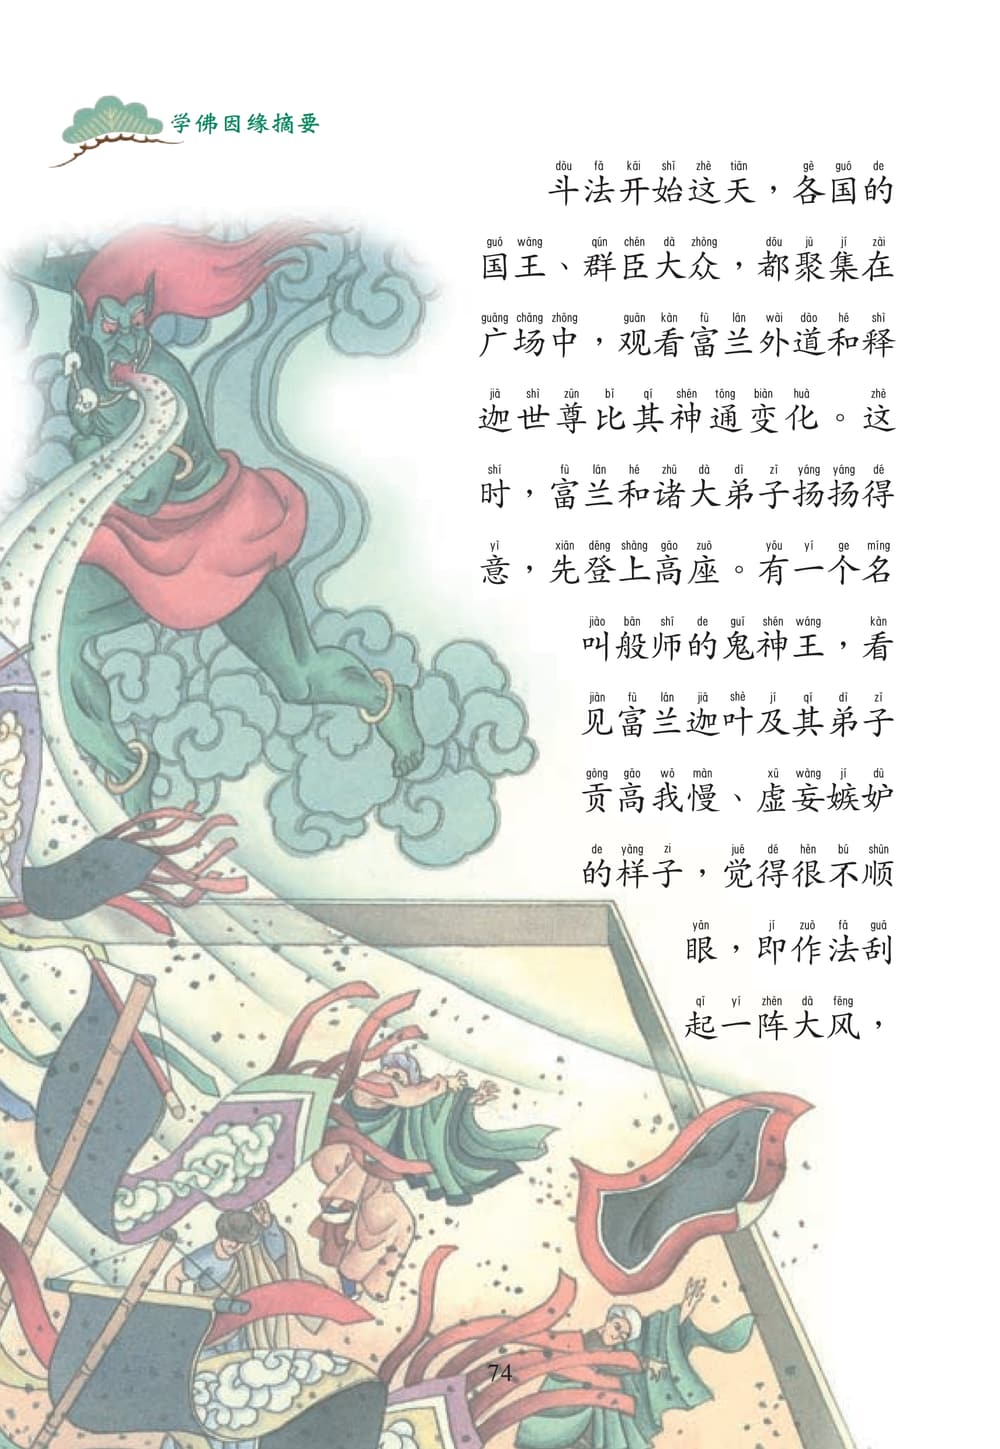 学佛因缘摘要
dòu fǎ kāi shǐ zhè tiān gè guó de
斗法开始这天，各国的
guó wáng qún chén dà zhòng dōu jù jí zài
国王、群臣大众，都聚集在
guǎng chǎng zhōng guān kàn fù lán wài dào hé shì
广场中，观看富兰外道和释
jiā shì zūn bǐ qí shén tōng biàn huà zhè
迦世尊比其神通变化。这
shí fù lán hé zhū dà dì zǐ yáng yáng dé
时，富兰和诸大弟子扬扬得
yì xiān dēng shàng gāo zuò yǒu yí ge míng
意，先登上高座。有一个名
jiào bān shī de guǐ shén wáng kàn
叫般师的鬼神王，看
jiàn fù lán jiā shè jí qí dì zǐ
见富兰迦叶及其弟子
gòng gāo wǒ màn xū wàng jí dù
贡高我慢、虚妄嫉妒
de yàng zi jué dé hěn bú shùn
的样子，觉得很不顺
yǎn jí zuò fǎ guā
眼，即作法刮
qǐ yí zhèn dà fēng
起一阵大风，
74